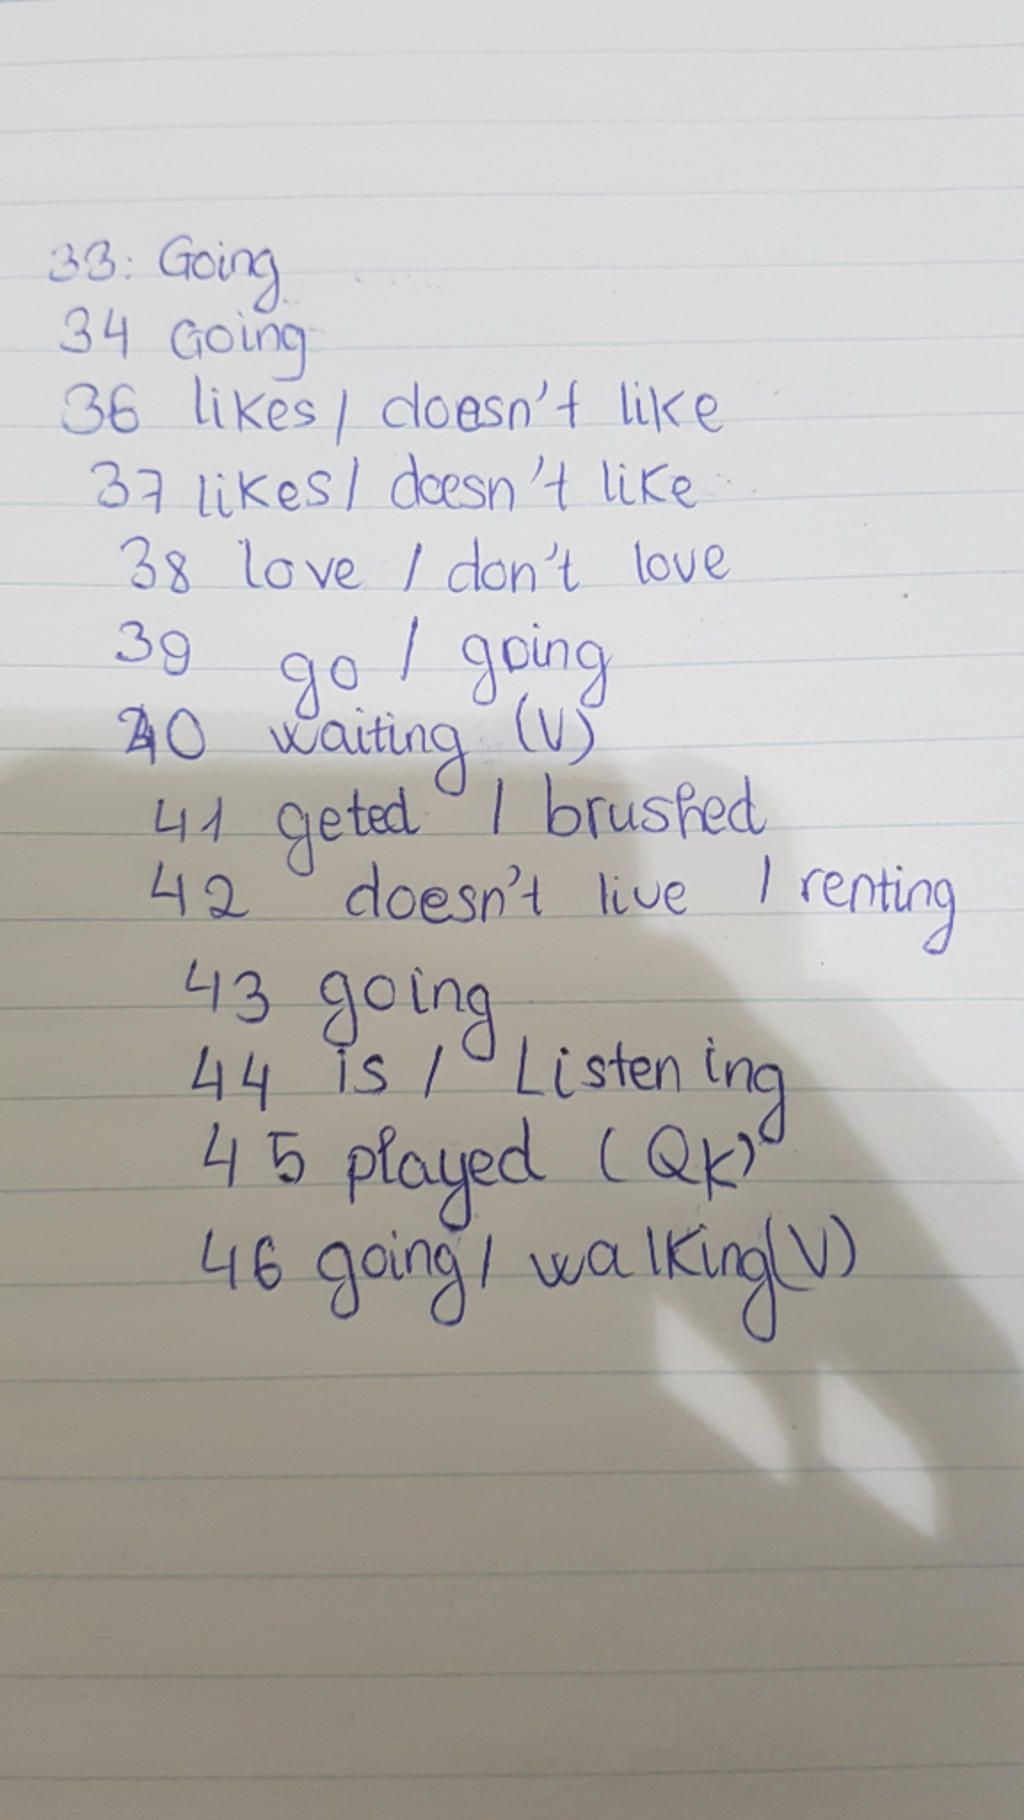 33: Going
34 Going
36 likes / doesn't like
37 likes / doesn't like
38 love / don't love
39 go / going
40 waiting (V)
41 geted / brushed
42 doesn't live / renting
43 going
44 is / Listening
45 played (QK)
46 going / walking(V)